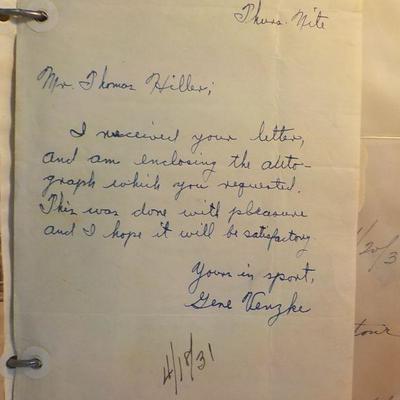 Thurs. Nite
Mr. Thomas Hiller;
I received your letter,
and am enclosing the auto-
graph which you requested.
This was done with pleasure
and I hope it will be satisfactory
Yours in sport,
Gene Venzke
4/18/31
1/20/3